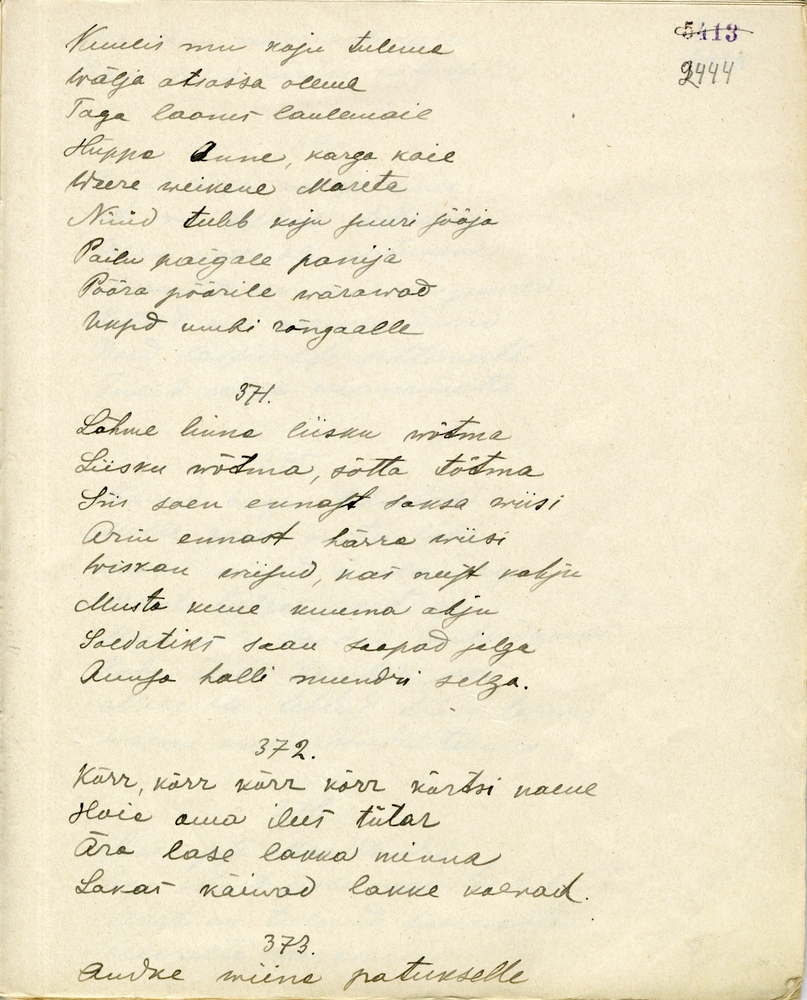 5413
2444
Kuulis mu koju tulema
Wälja otsassa olema
Taga laanes laulemaie
Hüppa Anne, karga kaie
Weere weikene Mareta
Nüüd tuleb koju suuri sööja
Palju paigale panija
Pööra pöörile wärawad
Uksed umbi rõngaalle
371.
Lähme linna liisku wõtma
Liisku wõtma, sõtta tõtma
Siis saen ennast saksa wiisi
Arin ennast härra wiisi
Wiskan wiisud, kas neist kahju
Musta kuue kuuma ahju
Soldatiks saan saapad jalga
Auuga halli mundri selga.
372.
Kõrr, kõrr kõrr kõrr kõrtsi naene
Hoia oma ilus tütar
Ära lase lakka minna
Lakas käiwad lakke koerad.
373.
Andke wiina patuselle